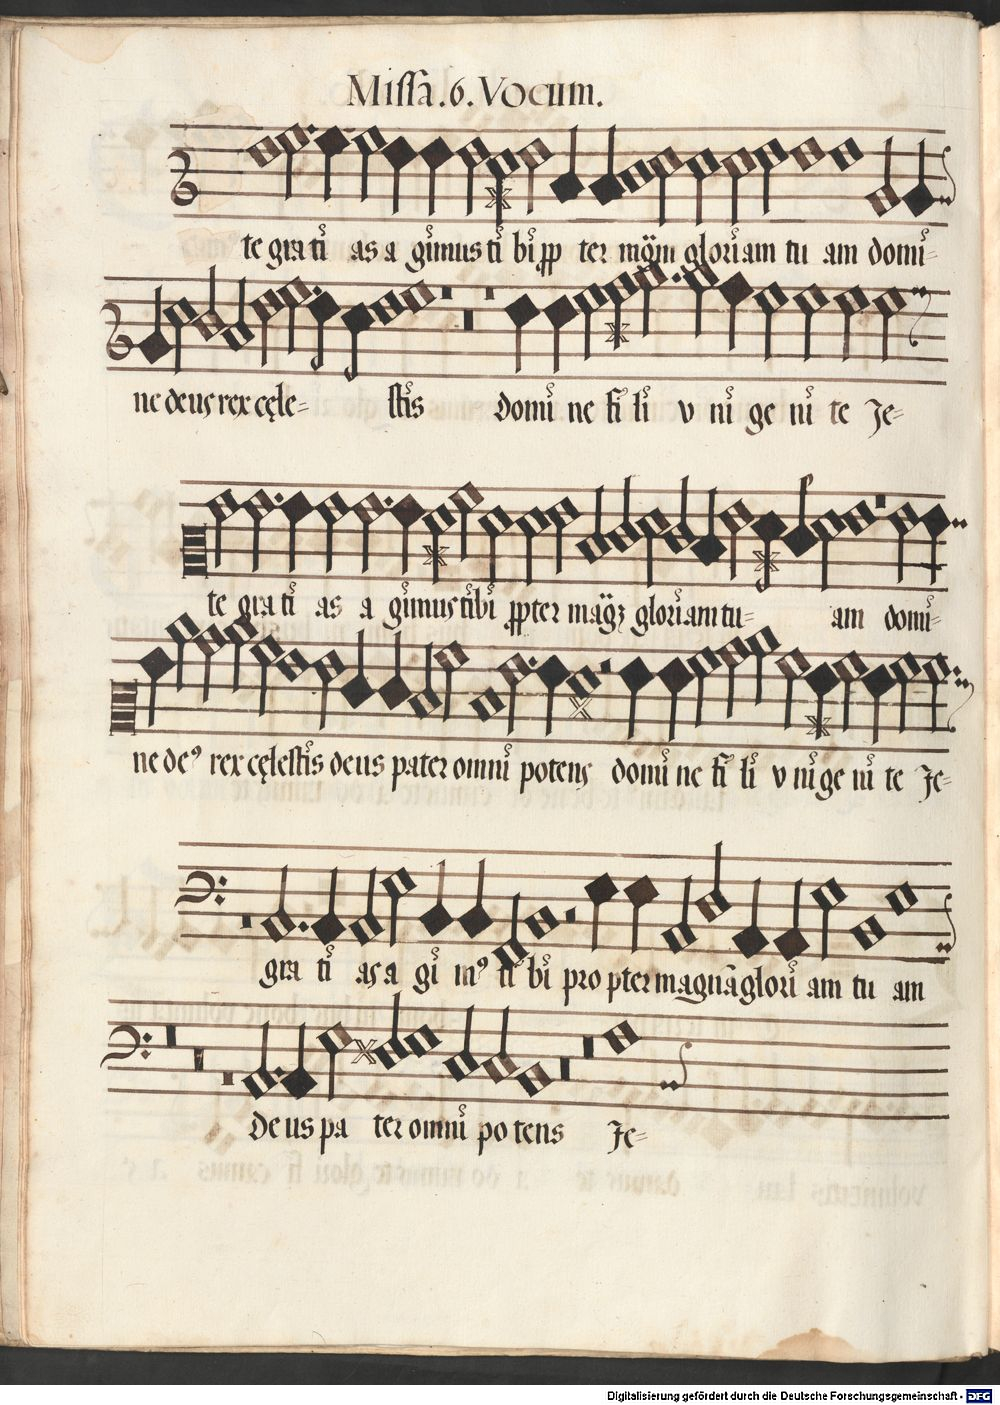 Missā .6. Vocum.
te gra ti as a gimus ti bi ꝓp ter mag̃m gloriam tu am domi-
ne deus rex cęle- stis domi ne fi li v ni ge ni te Je-
te gra ti as a gimus tibi ꝓpter mag̃ꝫ gloriam tu- am domi-
ne de⁹ rex cęlestis deus pater omni potens domi ne fi li v ni ge ni te Je-
gra ti as a gi m⁹ ti bi pro pter magnā glori am tu am
deus pa ter omni po tens Je-
Digitalisierung gefördert durch die Deutsche Forschungsgemeinschaft - DFG